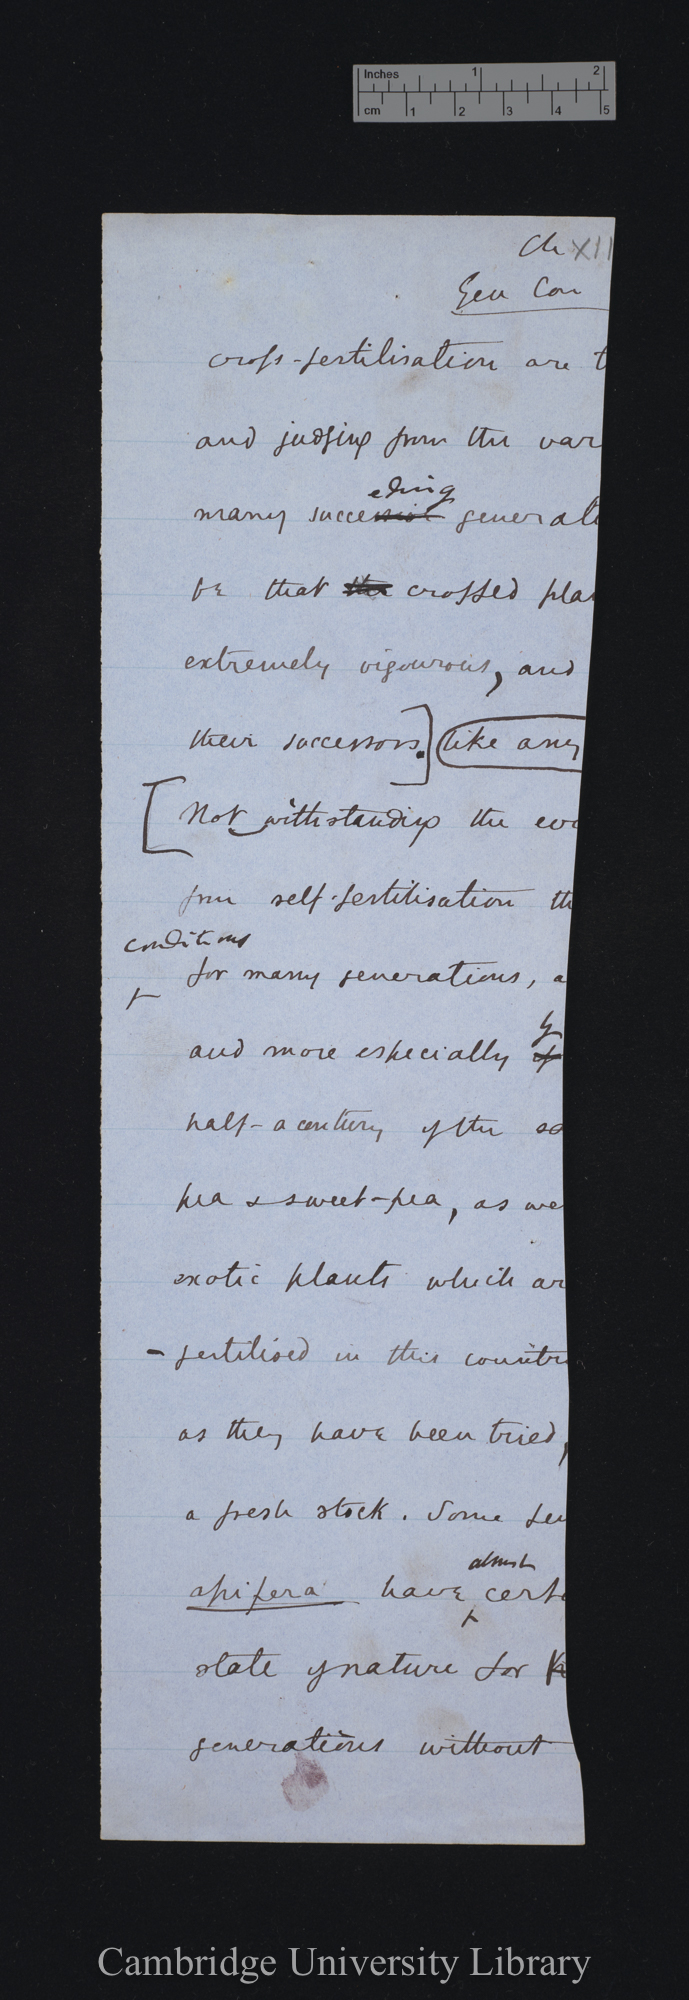 Inches 1 2
cm 1 2 3 4 5
Ch XII
Gen Con
cross-fertilisation are t
and judging from the var
eding
many succession generat
be that the crossed plan
extremely vigourous, and
their successors.] like any
[Notwithstanding the evi
from self-fertilisation th
conditions
for many generations, a
and more especially of
by
half-a century of the sa
pea & sweet-pea, as we
exotic plants which ar
-fertilised in this countr
as they have been tried,
a fresh stock. Some
almost
apifera have certa
state of nature for
generations without
Cambridge University Library